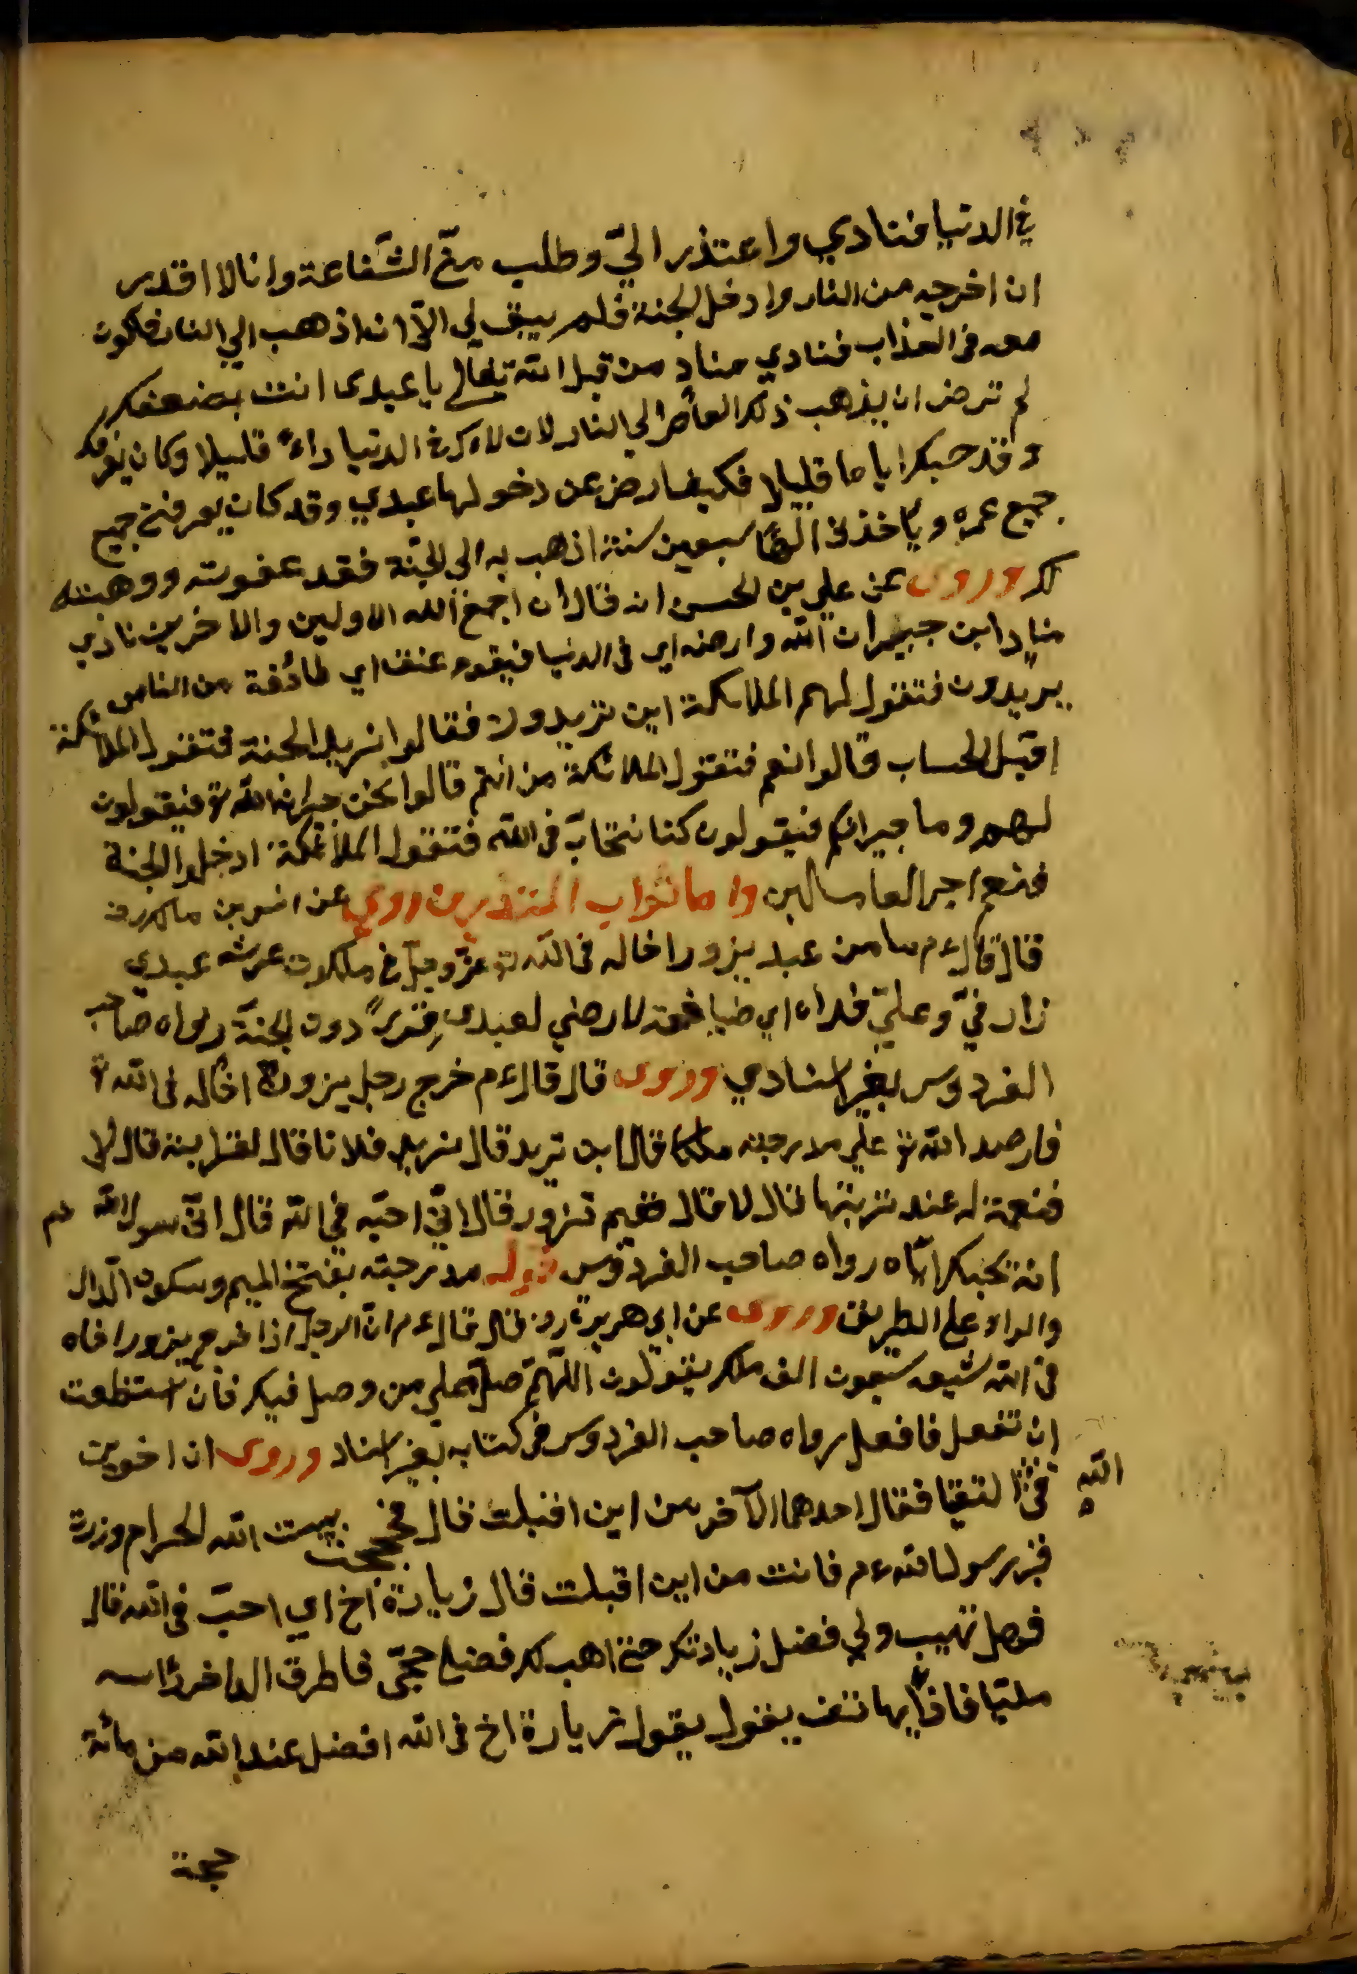 في الدنيا فنادي واعتذر اليّ وطلب منّي الشّفاعة وانا لا اقدر
ان اخرجه من النار وادخل الجنة فلم يبق لي الاّ ان اذهب الي النار فاكون
معه في العذاب فنادي منادٍ من قبل الله تعالي يا عبدى انت بضعفك
لم ترض ان يذهب ذلك العاصي الي النار لان لاه ك في الدنيا راءك قليلا وكان يعرفك
وقد صبك اياما قليلا فكيف ارض عن دخولها عبدي وقد كان يعرفني جميع
جميع عمره ويأخذني الٰهًا سبعين سنة اذهب به الى الجنّة فقد عفوته ووهبته
لك وروى عن علي بن الحسن انه قال ان اجمع الله الاولين والاخرين نادي
منادٍ اين جيران الله وارضه اي في الدنيا فيقوم عنق اي طائفة من الناس
يريدون فتقول لهم الملائكة اين تريدون فقالوا نريد الجنة فتقول الملائكة
اقبل الحساب قالوا نعم فتقول الملائكة من انتم قالوا نحن جيران الله تع فيقولون
لهم وما جيرانكم فيقولون كنا نتحابّ في الله فتقول الملائكة ادخلوا الجنة
فنعم اجر العاملين واما ثواب المتزورين روي عن انس بن مالك رض
قال قال ءم ما من عبد يزور اخاله في الله تع عزّ وجلّ في ملكوت عرشه عبدي
زار فيّ وعليّ قراه اي ضيافته لا ارضي لعبدى قرىً دون الجنّة رواه صاحب
الفردوس بغير اسنادي وروى قال قال ءم خرج رجل يزور اخًا له في الله تع
فارصد الله تع علي مدرجته ملكا قال اين تريد قال نريد فلانا قال لقرابة قال لا
فنعمة له عندك تربّها قال لا قال ففيم تزور قال انّي احبّه في الله قال انّي رسول الله ءم
انه يحبك ايّاه رواه صاحب الفردوس قوله مدرجته بفتح الميم وسكون الّدال
والراء علي الطريق وروى عن ابي هريرة رض قال قال ءم انّ الرجل اذا خرج يزور اخاه
في الله شيعه سبعون الف ملك يقولون اللهمّ صلّ علي من وصل فيك فان استطعت
ان تفعل فافعل رواه صاحب الفردوس في كتابه بغير اسناد وروى ان اخوين
في الله التقيا فقال احدهما الآخر من اين اقبلت قال حججت بيت الله الحرام وزرت
قبر رسول الله ءم فانت من اين اقبلت قال زيارة اخ اي احبّ في الله قال
فهل تهيب ولي فضل زيارتك حتي اهب لك فضل حجّي فاطرق الاخر رأسه
مليّا فاذا بهاتف يقول يقول زيارة اخ في الله افضل عند الله من مائة
حجة